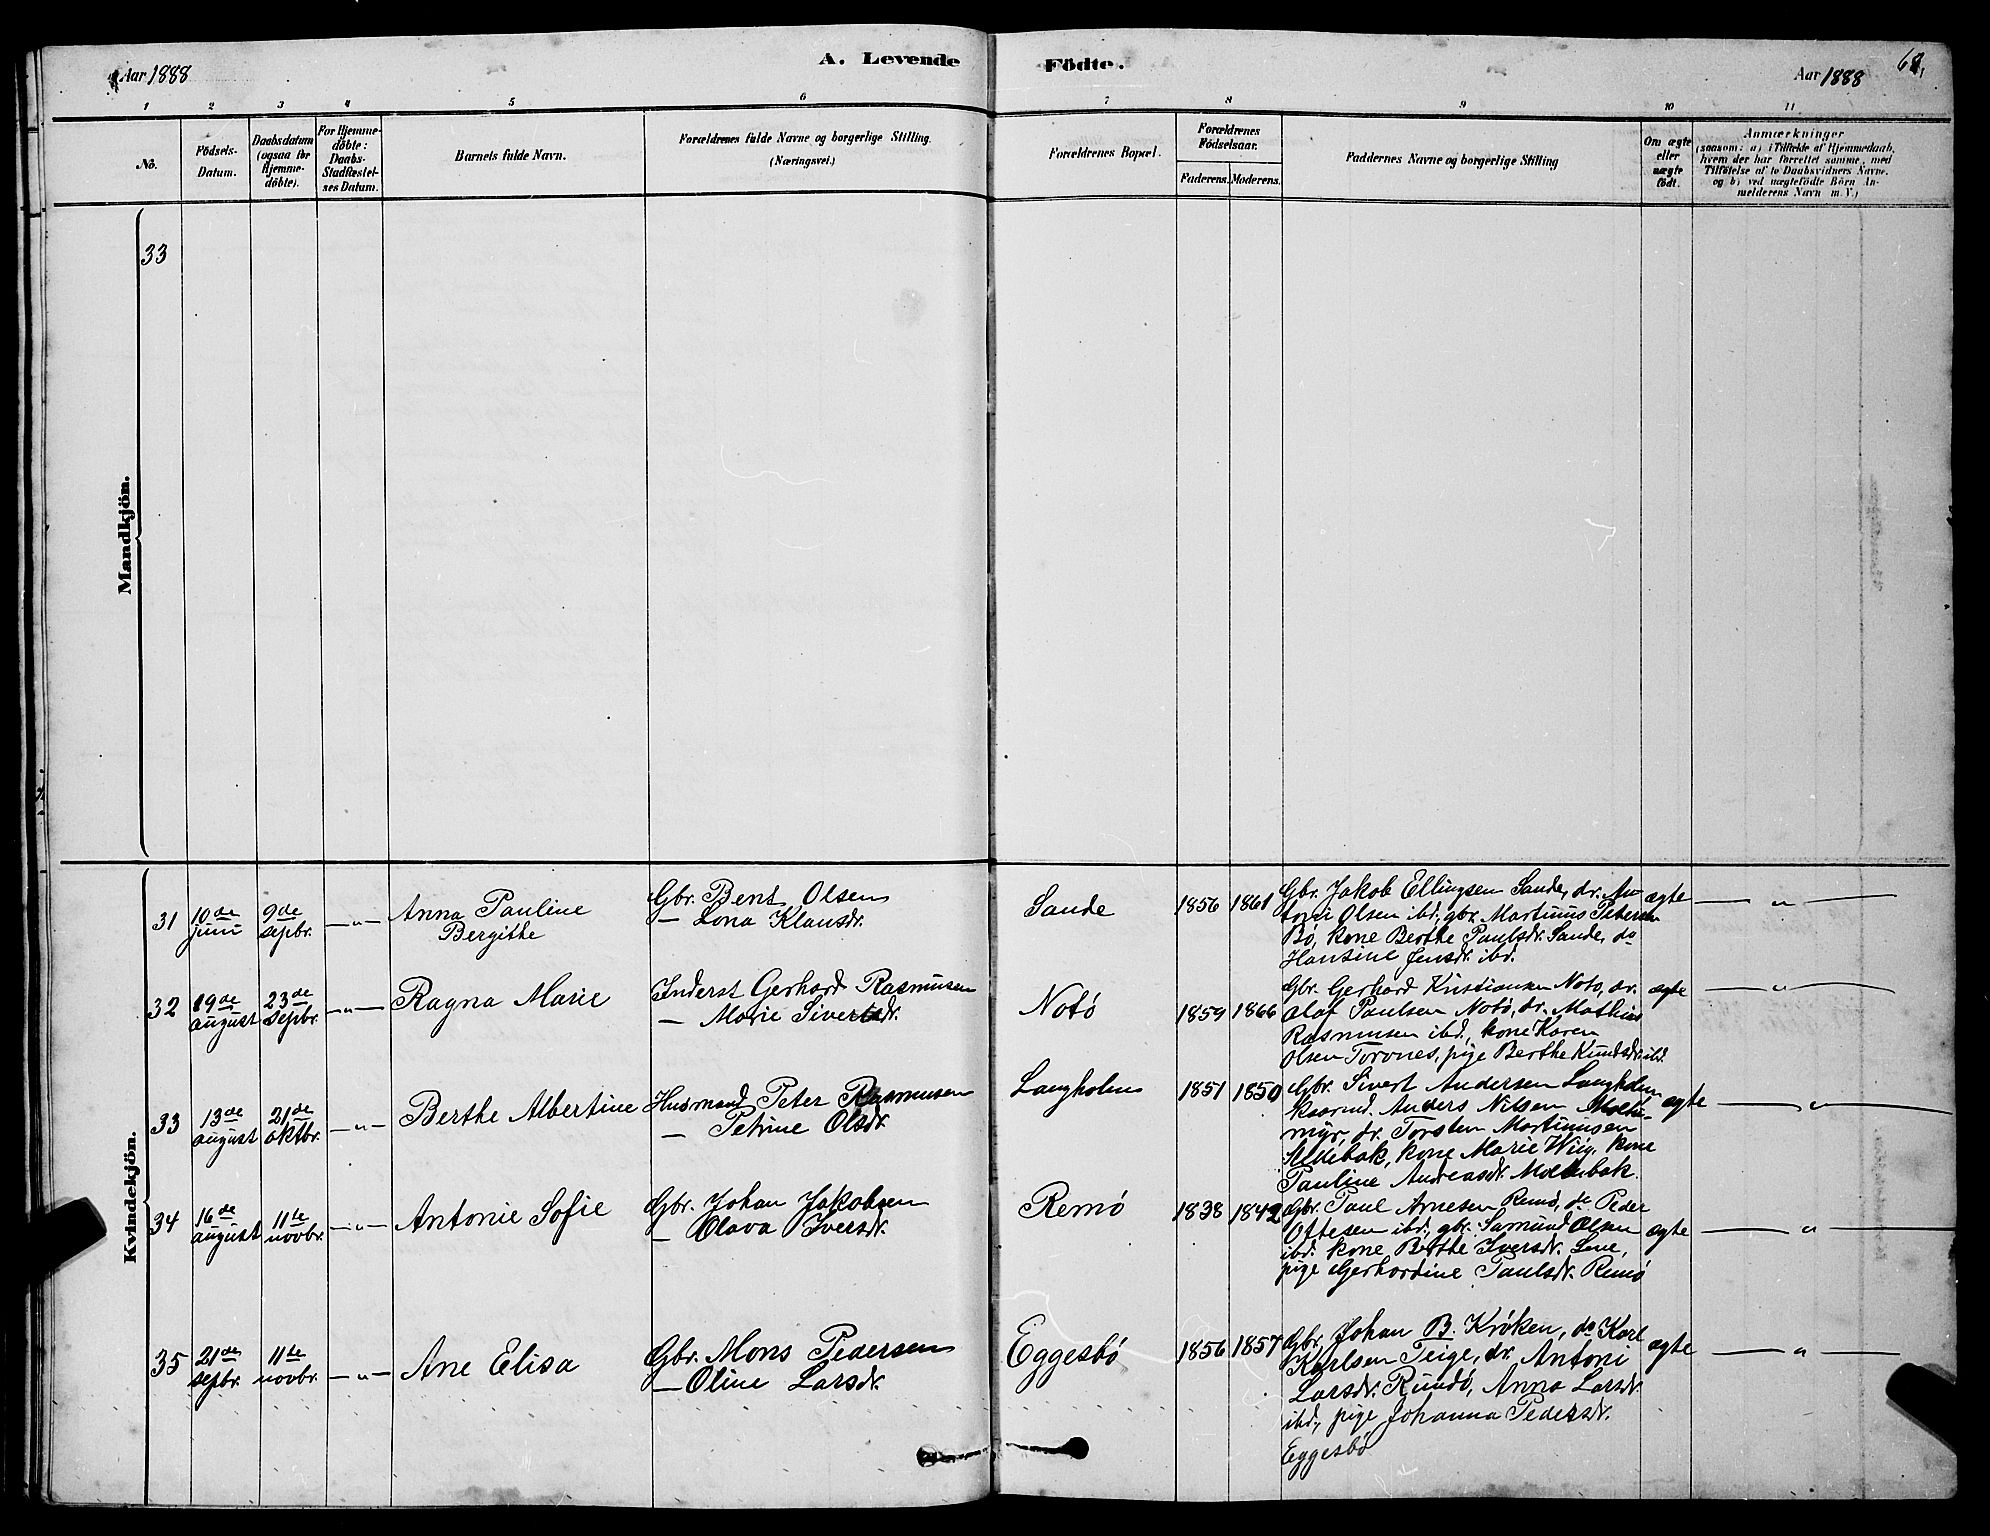 Aar 1888
A. Levende
Födte.
Aar 1888
1 2 3 4 5 6 7 8 9 10 11
No.
Födsels-
Datum.
Daabsdatum
(ogsaa for
Hjemme-
döbte).
For Hjemme-
döbte:
Daabs-
Stadfæstel-
ses Datum.
Barnets fulde Navn.
Forældrenes fulde Navne og borgerlige Stilling.
(Næringsvei.)
Forældrenes Bopæl.
Forældrenes
Födselsaar.
Faderens. Moderens.
Faddernes Navne og borgerlige Stilling
Om ægte
eller
uægte
födt.
Anmærkninger
(saasom: a) i Tilfælde af Hjemmedaab,
hvem der har forrettet samme, med
Tilföielse af to Daabsvidners Navne.
og b) ved uægtefödte Börn An-
melderens Navn m. V.)
Mandkjön.
33
Kvindekjön.
31
10de
juni
9de
sepbr.
—„—
Anna Pauline
Bergithe
Gbr. Bent Olsen
— Lona Klausdr.
Sande
1856 1861
Gbr. Jakob Ellingsen Sande, dr. An-
toni Olsen ibd, gbr. Martinus Petersen
Bö, kone Berthe Paulsdr. Sande, do
Hansine Jensdr. ibd.
ægte
— „ —
32
19de
august
23de
sepbr.
—„—
Ragna Marie
Inderst Gerhard Rasmusen
— Marie Sivertsdr.
Notö
1859 1866
Gbr. Gerhard Kristiansen Notö, dr.
Olaf Paulsen Notö, dr. Mathias
Rasmusen ibd., kone Karen
Olsen Torvnes, pige Berthe Knudsdr. ibd.
ægte
— „ —
33
13de
august
21de
oktbr.
—„—
Berthe Albertine
Husmand Peter Rasmusen
— Petrine Olsdr.
Langholm
1851 1850
Gbr. Sivert Andersen Langholm
kaarmd. Anders Nilsen
myr, dr. Torsten Martinusen
kone Marie Wiig, kone
Pauline Andreasdr.
ægte
— „ —
34
16de
august
11te
novbr.
—„—
Antonie Sofie
Gbr. Johan Jakobsen
— Olava Iversdr.
Remö
1838 1842
Gbr. Paul Arnesen Remö, do Peder
Ottesen ibd, gbr. Samund Olsen
ibd. kone Berthe Iversdr. Lene,
pige Gerhardine Paulsdr. Remö
ægte
— „ —
35
21de
sepbr.
11te
novbr.
—„—
Ane Elisa
Gbr. Mons Pedersen
— Oline Larsdr.
Eggesbö
1856 1857
Gbr. Johan B. Kröken, do Karl
Karlsen Teige, dr. Antoni
Larsdr. Rundö, Anna Larsdr.
ibd, pige Johanna Pedersdr.
Eggesbö
ægte
— „ —